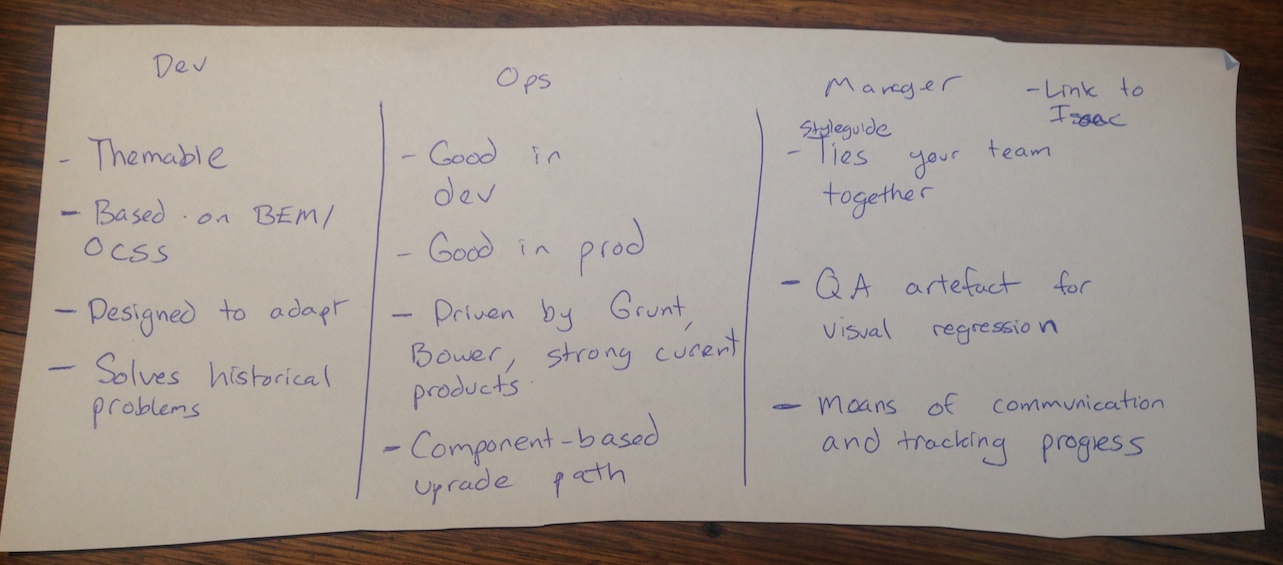 Dev
- Themable
- Based on BEM/
OCSS
- Designed to adapt
- Solves historical
problems
Ops
- Good in
dev
- Good in prod
- Driven by Grunt,
Bower, strong curent
products
- Component-based
uprade path
Manager
- Link to
Isaac
Styleguide
- Ties your team
together
- QA artefact for
visual regression
- means of communication
and tracking progress